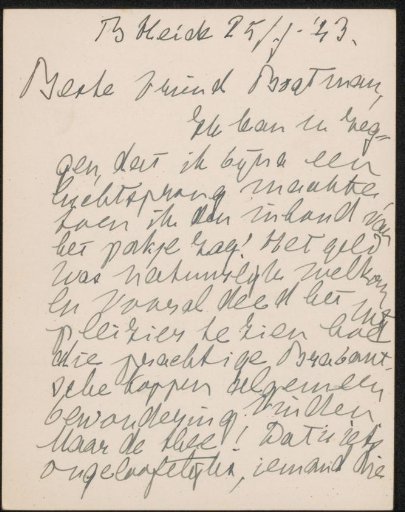 Th Heide 25/1-'43.
Beste vriend Bogtman,
Ik kan u zeg-
gen, dat ik bijna een
luchtsprong maakte
toen ik den inhoud van
het pakje zag! Het geld
was natuurlijk welkom
en vooral deed het mij
pleizier te zien hoe
die prachtige Brabant-
sche koppen algemeen
bewondering vinden
Maar de thee! Dat is iets
ongeloofelijks, iemand die